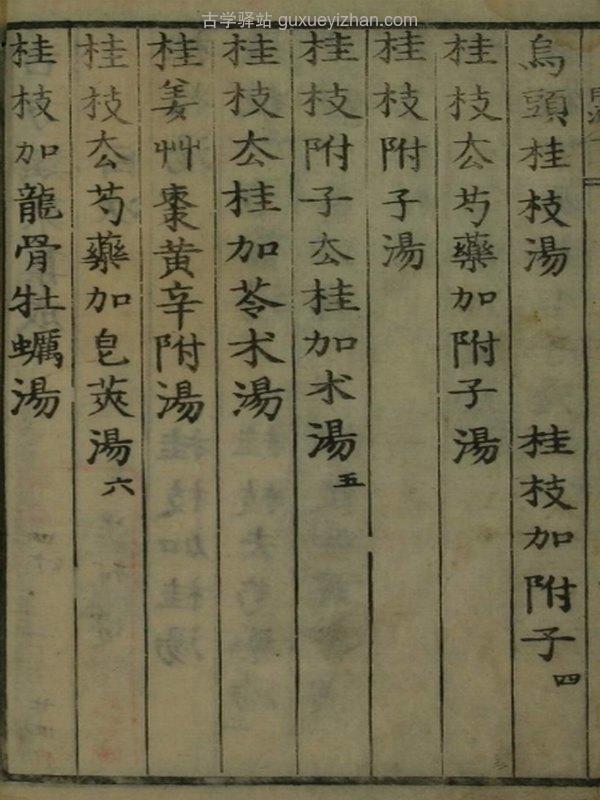 古学驿站 guxueyizhan.com
烏頭桂枝湯 桂枝加附子四
桂枝厺芍藥加附子湯
桂枝附子湯
桂枝附子厺桂加朮湯五
桂枝厺桂加苓朮湯
桂姜艸棗黃辛附湯
桂枝厺芍藥加皂莢湯六
桂枝加龍骨牡蠣湯